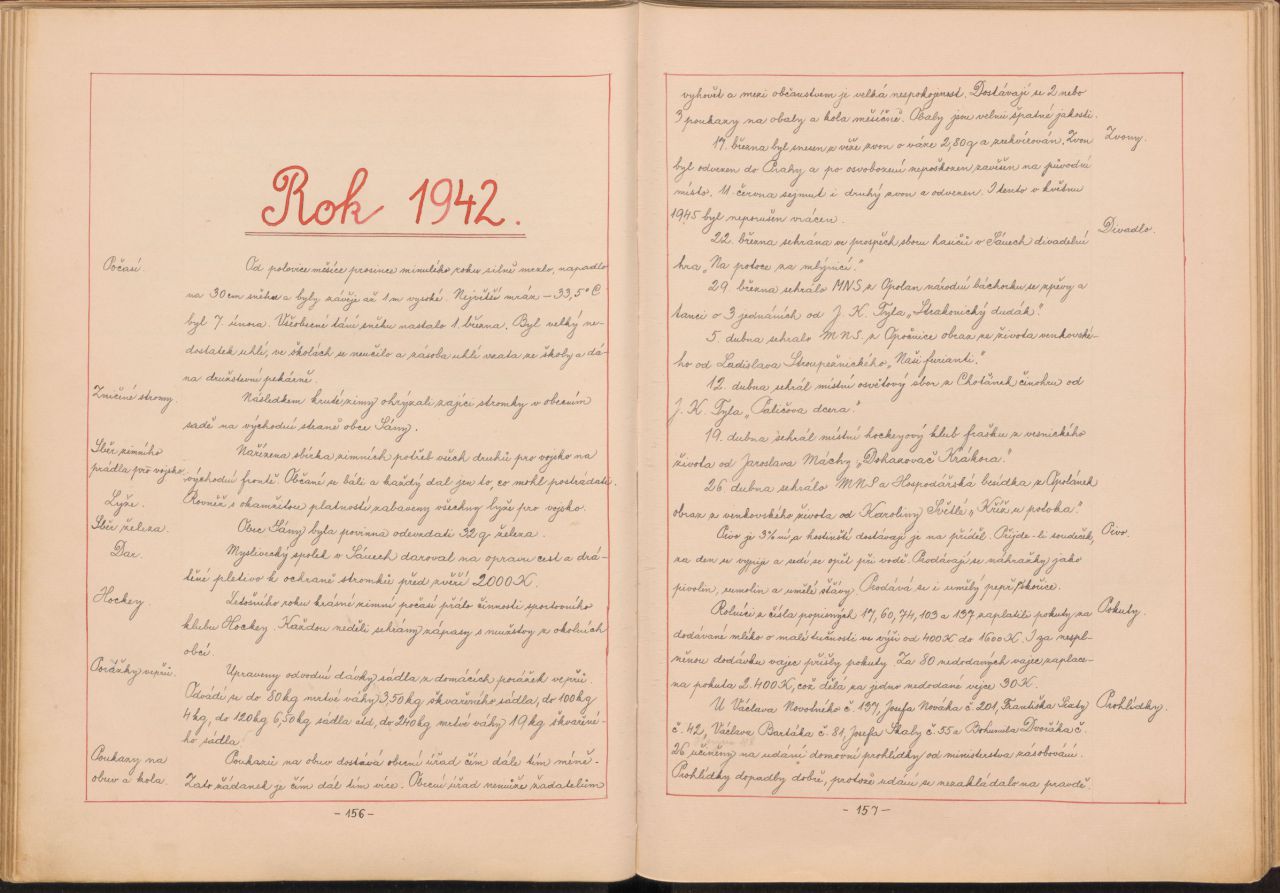 Rok 1942.
Počasí.
Od polovice měsíce prosince minulého roku silně mrzlo, napadlo
na 30 cm sněhu a byly závěje až 1 m vysoké. Největší mráz – 33,5° C
byl 7. února. Všeobecné tání sněhu nastalo 1. března. Byl velký ne-
dostatek uhlí, ve školách se neučilo a zásoba uhlí vzata ze školy a dá-
na družstevní pekárně.
Zničené stromy.
Následkem kruté zimy ohryzali zajíci stromky v obecním
sadě na východní straně obce Sány.
Sběr zimního
prádla pro vojsko.
Nařízena sbírka zimních potřeb všech druhů pro vojsko na
východní frontě. Občané se báli a každý dal jen to, co mohl postrádati.
Lyže.
Rovněž s okamžitou platností zabaveny všechny lyže pro vojsko.
Sběr železa.
Obec Sány byla povinna odevzdati 32 q železa.
Dar.
Myslivecký spolek v Sánech daroval na opravu cest a drá-
těné pletivo k ochraně stromků před zvěří 2000 K.
Hockey.
Letošního roku krásné zimní počasí přálo činnosti sportovního
klubu Hockey. Každou neděli sehrány zápasy s mužstvy z okolních
obcí.
Porážky vepřů.
Upraveny odvodní dávky sádla z domácích porážek vepřů.
Odvádí se do 80 kg mrtvé váhy 3,50 kg škvařeného sádla, do 100 kg
4 kg, do 120 kg 6,50 kg sádla atd, do 240 kg mrtvé váhy 19 kg škvařené-
ho sádla.
Poukazy na
obuv a kola
Poukazů na obuv dostává obecní úřad čím dále tím méně.
Zato žádanek je čím dál tím více. Obecní úřad nemůže žadatelům
- 156 -
vyhovět a mezi občanstvem je velká nespokojenost. Dostávají se 2 nebo
3 poukazy na obaly a kola měsíčně. Obaly jsou velmi špatné jakosti.
Zvony.
17. března byl snesen z věže zvon o váze 2,80 q a zrekvírován. Zvon
byl odvezen do Prahy a po osvobození nepoškozen zavěšen na původní
místo. 11. června sejmut i druhý zvon a odvezen. I tento v květnu
1945 byl neporušen vrácen.
Divadlo.
22. března sehrána ve prospěch sboru hasičů v Sánech divadelní
hra „Na potoce za mlýnicí."
29. března sehrálo MNS z Opolan národní báchorku se zpěvy a
tanci o 3 jednáních od J. K. Tyla „Strakonický dudák".
5. dubna sehrálo MNS. z Opočnice obraz ze života venkovské-
ho od Ladislava Stroupežnického „Naši furianti."
12. dubna sehrál místní osvětový sbor z Choťánek činohru od
J. K. Tyla „Paličova dcera."
19. dubna sehrál místní hockeyový klub frašku z vesnického
života od Jaroslava Máchy „Dohazovač Krákora."
26. dubna sehrálo MNS a Hospodářská besídka z Opolánek
obraz z venkovského života od Karoliny Světlé „Kříž u potoka."
Pivo.
Pivo je 3%ní a hostinští dostávají je na příděl. Přijde-li soudeček,
za den se vypije a sedí se opět při vodě. Prodávají se náhražky jako
pivolin, rumolin a umělé šťávy. Prodává se i umělý pepř/skořice.
Pokuty.
Rolníci z čísla popisných 17, 60, 74, 103 a 137 zaplatili pokuty za
dodávané mléko o malé tučnosti ve výši od 400 K do 1600 K. I za nespl-
něnou dodávku vajec přišly pokuty. Za 80 nedodaných vajec zaplace-
na pokuta 2.400 K, což dělá za jedno nedodané vejce 30 K.
Prohlídky.
U Václava Novotného č. 197, Josefa Nováka č. 201, Františka Laty
č. 42, Václava Bartáka č. 81, Josefa Skaly č. 55 a Bohumila Dvořáka č.
26 učiněny na udání domovní prohlídky od ministerstva zásobování.
Prohlídky dopadly dobře, protože udání se nezakládalo na pravdě.
- 157 -